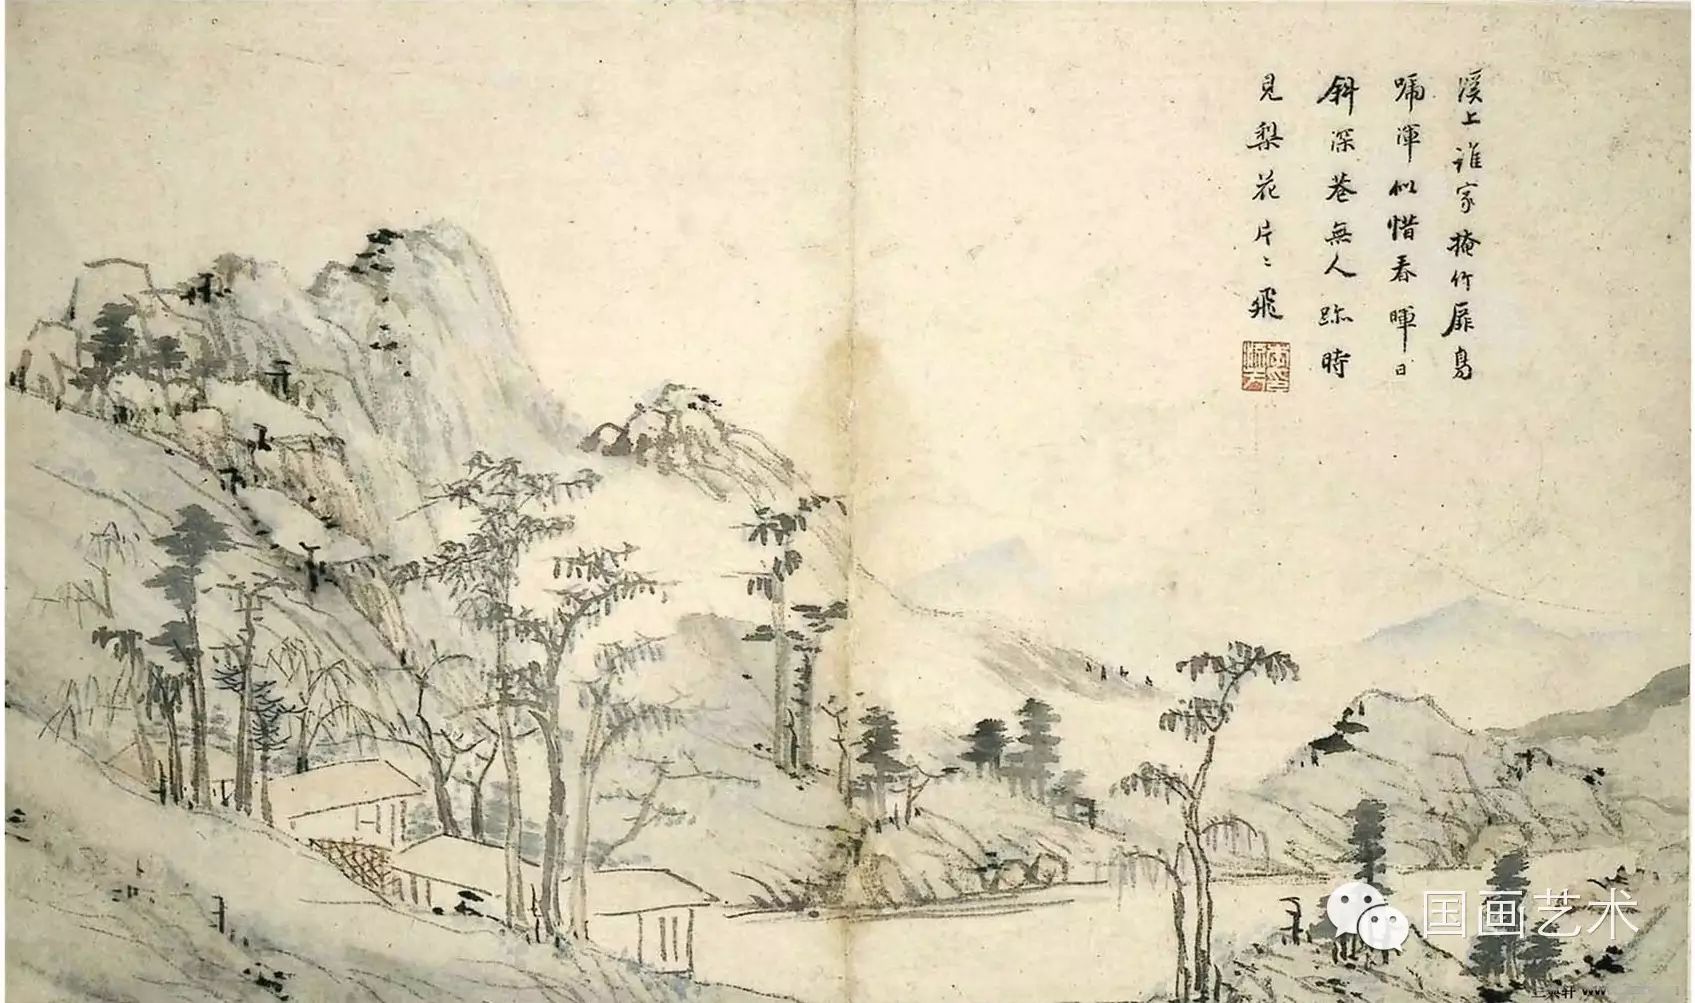 溪上誰家掩竹扉鳥
嗁渾似惜春暉日
斜深巷無人跡時
見梨花片〻飛
国画艺术